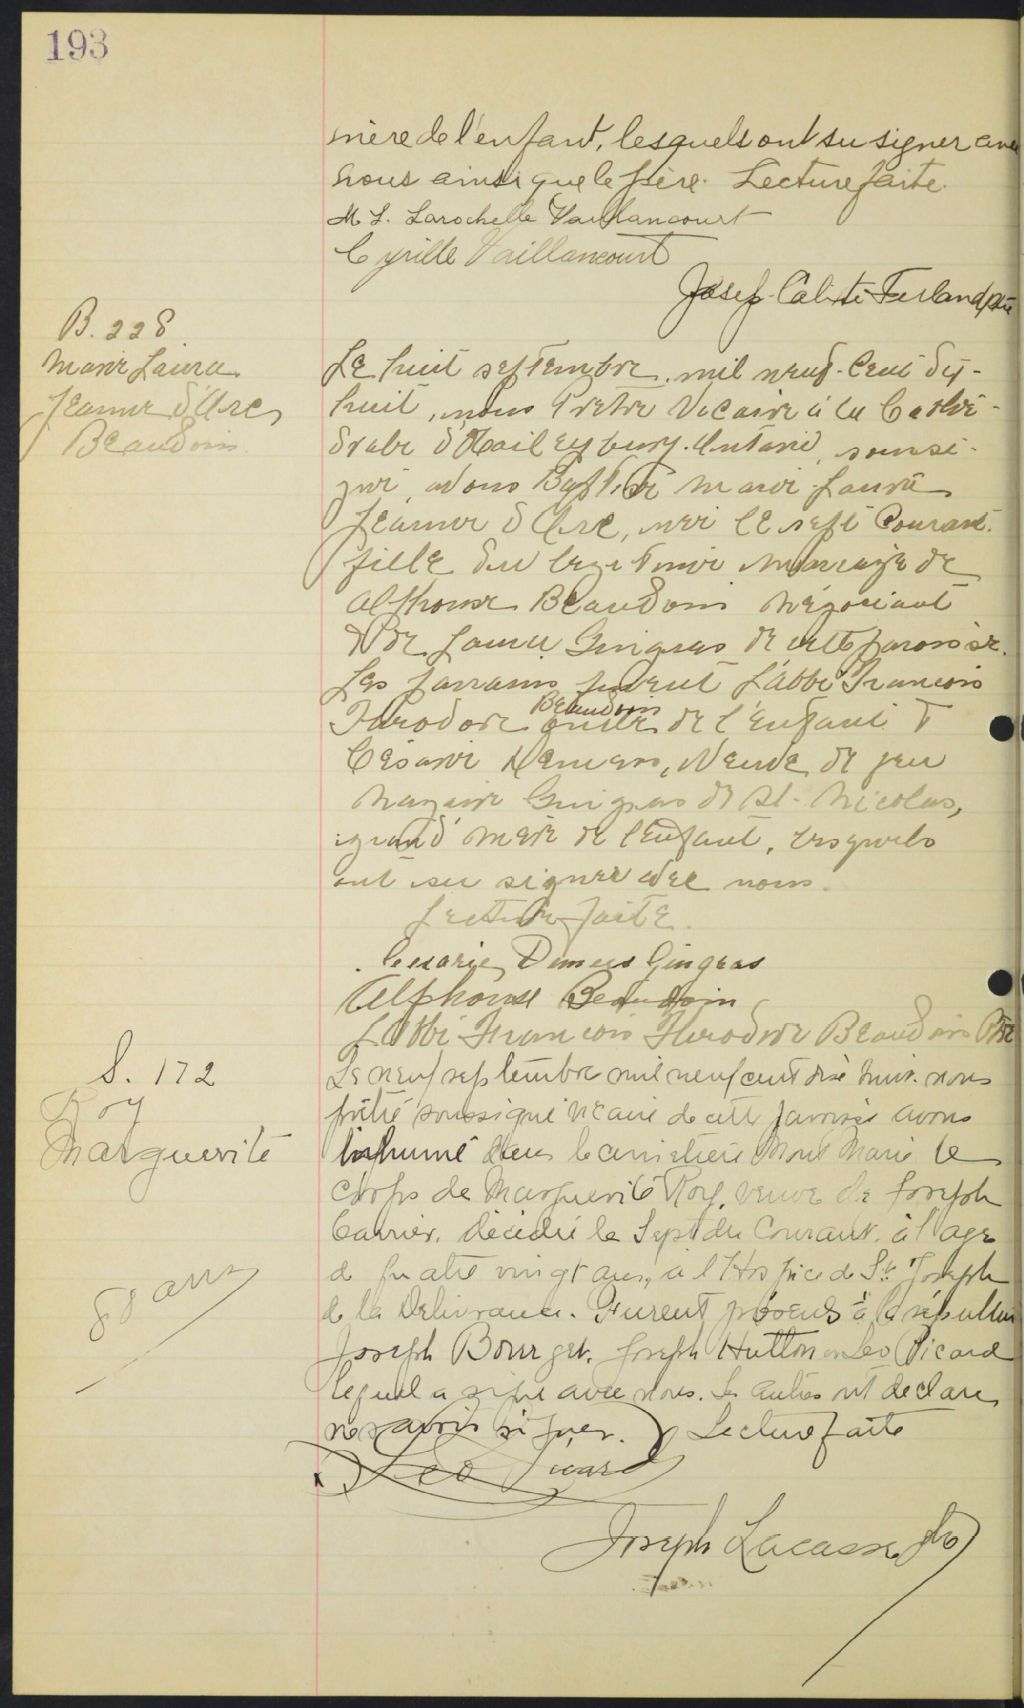 193
mère de l'enfant, lesquels ont su signer avec
nous ainsi que le père. Lecture faite.
M L. Larochelle Vaillancourt
Cyrille Vaillancourt
Josep. Calixte Ferland ptre
B. 228
Marie Laura
Jeanne d'Arc
Beaudoin
Le huit septembre, mil neuf-cent dix-
huit, nous Prêtre Vicaire à la Cathé-
drale d'Haileybury. Ontario, soussi-
gné, avons Baptisé Marie Laura
Jeanne d'Arc, née le sept Courant.
fille du légitime mariage de
Alphonse Beaudoin Négociant
& de Laura Gingras de cette paroisse.
Les parrains furent L'abbé Francois
Theodore Beaudoin oncle de l'enfant &
Césarie Demers, Veuve de feu
Nazaire Gingras de St-Nicolas,
grand'mère de l'enfant, lesquels
ont su signer avec nous.
Lecture faite.
Cesarie Demers Gingras
Alphonse Beaudoin
L'abbé Francois Theodore Beaudoin Ptre
S. 172
Roy
Marguerite
80 ans
Le neuf septembre mil neuf cent dix huit. nous
prêtre soussigné vicaire de cette paroisse avons
inhumé dans le cimetière Mont Marie le
corps de Marguerite Roy, veuve de Joseph
Carrier, décédée le Sept du Courant. à l'age
de quatre vingt ans, à l'Hospice de St Joseph
de la Délivrance. Furent présents à la sépulture
Joseph Bourget. Joseph Hutton Leo Picard
lequel a signé avec nous. Les autres ont déclaré
ne savoir signer. Lecture faite
Leo Picard
Joseph Lacasse ptre